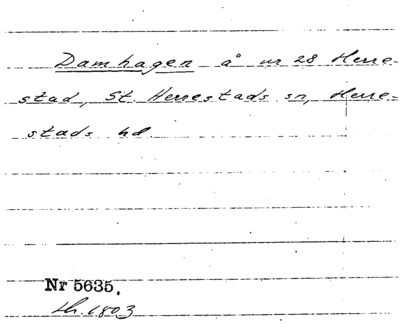 Damhagen å nr 28 Herre-
stad, St. Herrestads sn, Herre-
stads hd.
Nr 5635.
Lh. 1803